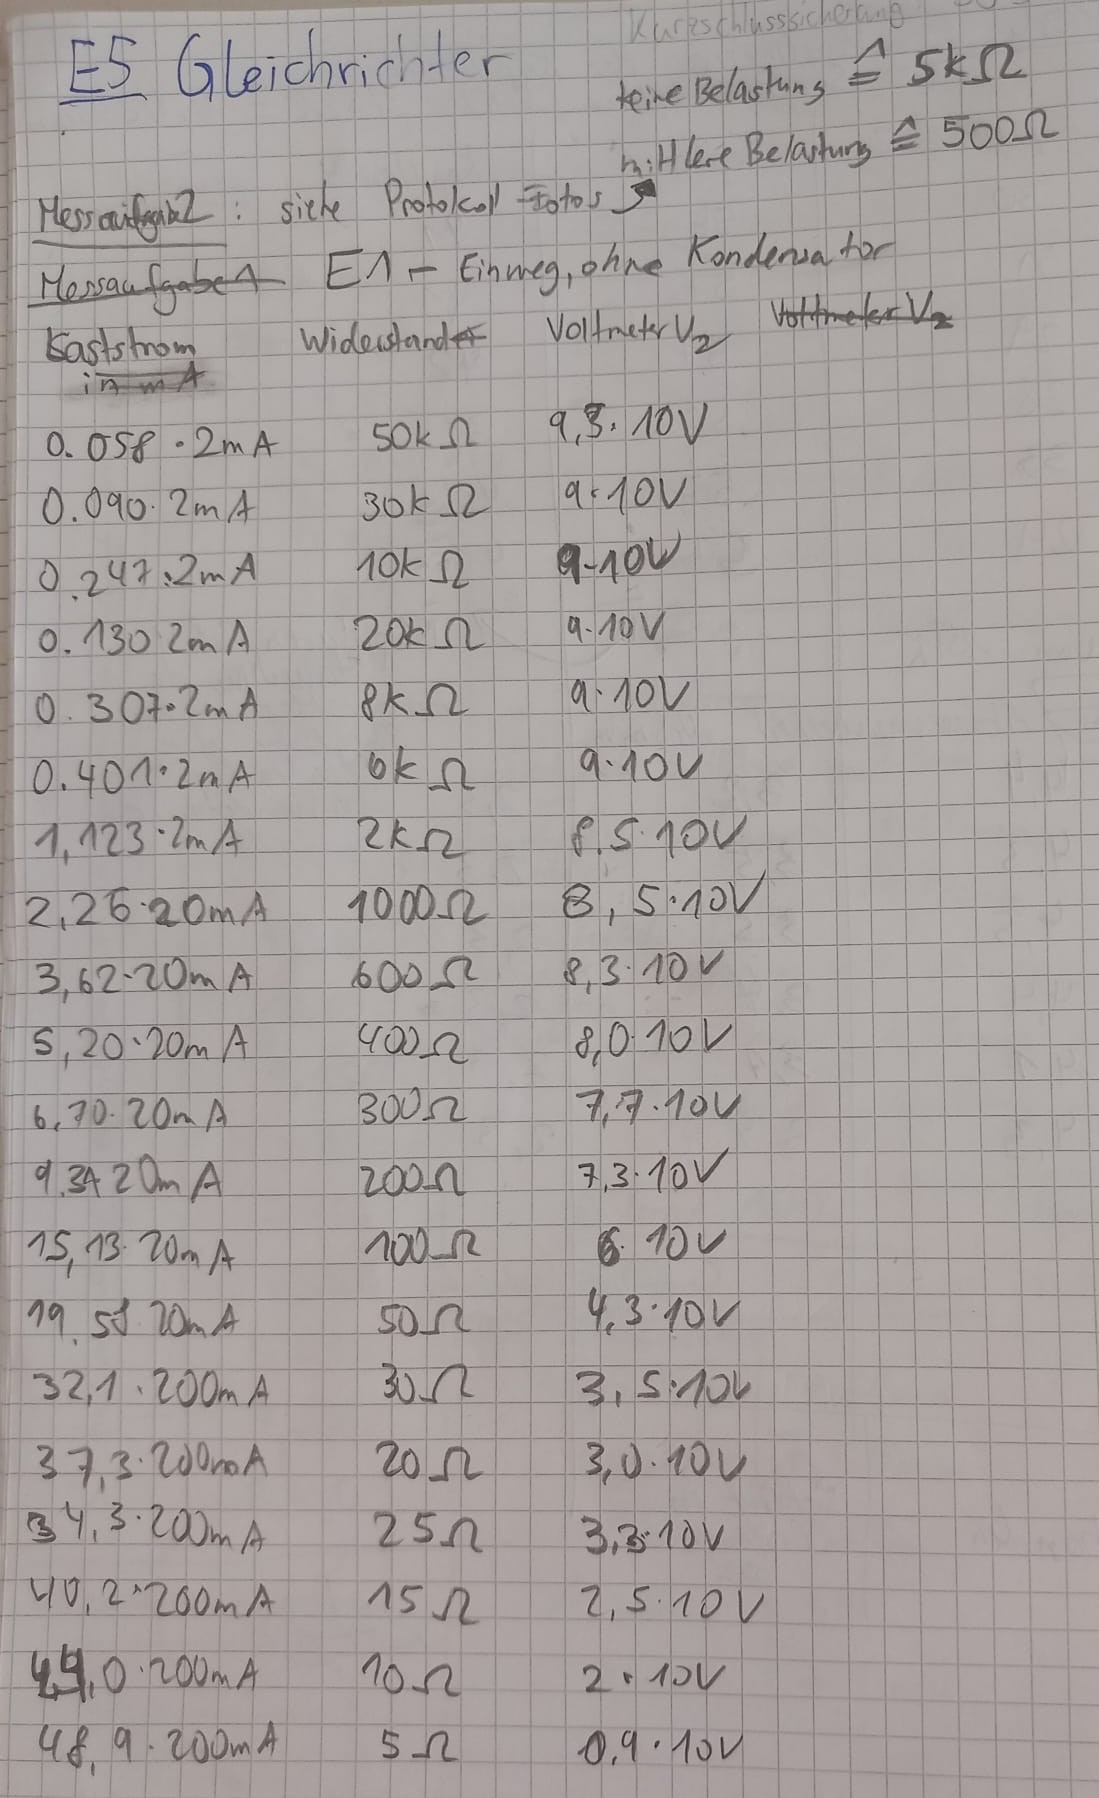 Kurzschlusssicherung
E5 Gleichrichter
keine Belastung ≙ 5kΩ
mittlere Belastung ≙ 500Ω
Messaufgabe2: siehe Protokoll Fotos
Messaufgabe1 E1 – Einweg, ohne Kondensator
Laststrom Widerstand Voltmeter V2 Voltmeter V2
in mA
0.058 · 2mA 50kΩ 9,3 · 10V
0.090 · 2mA 30kΩ 9 · 10V
0.247 · 2mA 10kΩ 9 · 10V
0.130 2mA 20kΩ 9 · 10V
0.307 · 2mA 8kΩ 9 · 10V
0.401 · 2mA 6kΩ 9 · 10V
1,123 · 2mA 2kΩ 8,5 · 10V
2,26 · 20mA 1000Ω 8,5 · 10V
3,62 · 20mA 600Ω 8,3 · 10V
5,20 · 20mA 400Ω 8,0 · 10V
6,70 · 20mA 300Ω 7,7 · 10V
9,34 20mA 200Ω 7,3 · 10V
15,13 · 20mA 100Ω 6 · 10V
20mA 50Ω 4,3 · 10V
32,1 · 200mA 30Ω 3,5 · 10V
37,3 · 200mA 20Ω 3,0 · 10V
34,3 · 200mA 25Ω 3,3 · 10V
40,2 · 200mA 15Ω 2,5 · 10V
44,0 · 200mA 10Ω 2 · 10V
48,9 · 200mA 5Ω 0,9 · 10V